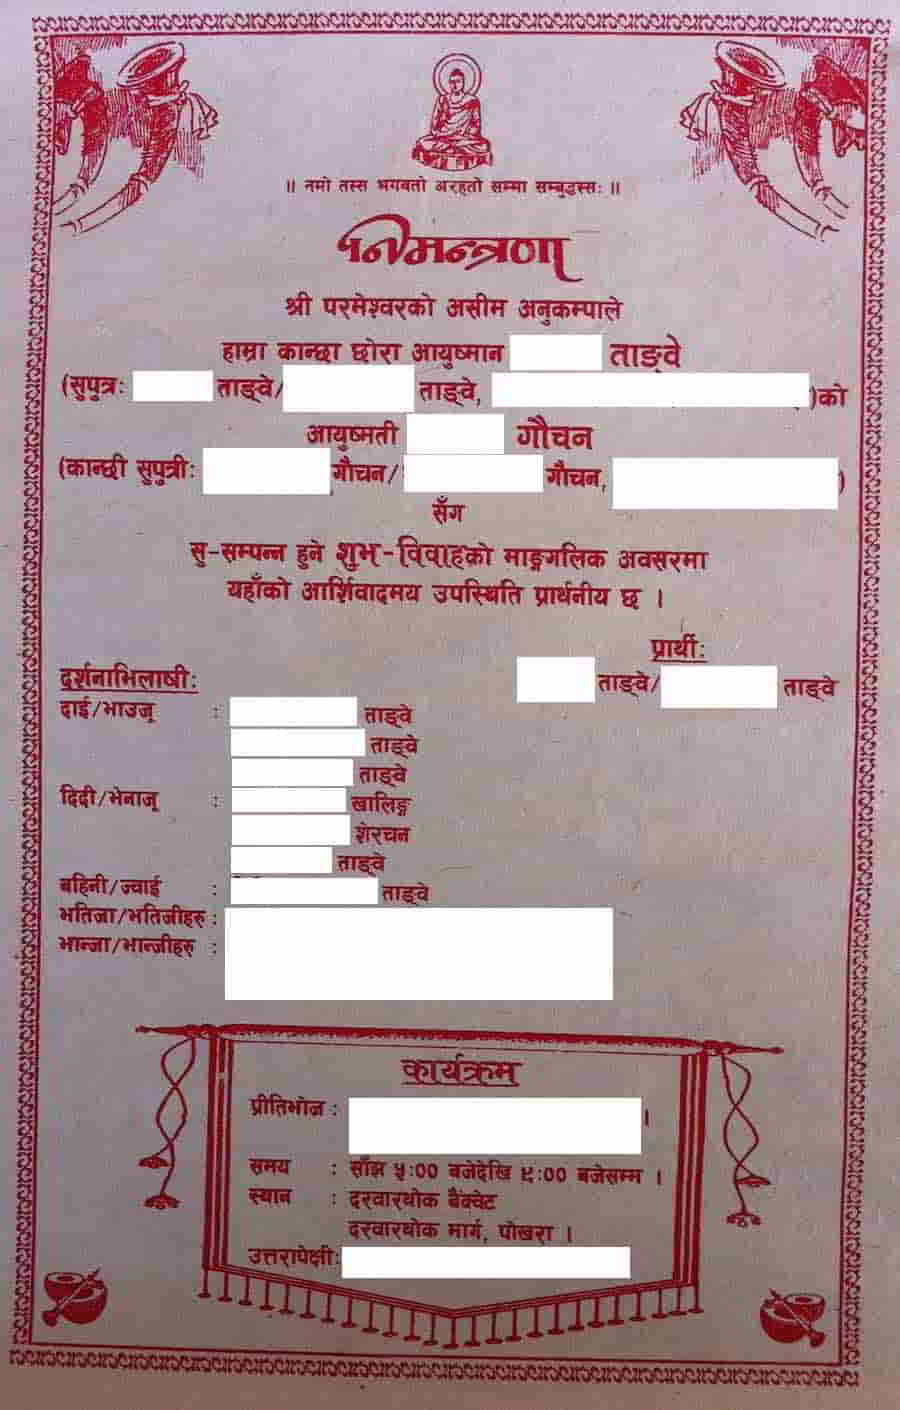 ॥ नमो तस्स भगवतो अरहतो सम्मा सम्बुद्धस्सः ॥
निमन्त्रणा
श्री परमेश्वरको असीम अनुकम्पाले
हाम्रा कान्छा छोरा आयुष्मान ताङ्वे
(सुपुत्रः ताङ्वे/ ताङ्वे, )को
आयुष्मती गौचन
(कान्छी सुपुत्रीः गौचन/ गौचन, )
सँग
सु-सम्पन्न हुने शुभ-विवाहको माङ्गलिक अवसरमा
यहाँको आर्शिवादमय उपस्थिति प्रार्थनीय छ ।
प्रार्थीः
ताङ्वे/ ताङ्वे
दर्शनाभिलाषीः
दाई/भाउजू : ताङ्वे
ताङ्वे
ताङ्वे
दिदी/भेनाजू : खालिङ्ग
शेरचन
ताङ्वे
बहिनी/ज्वाई : ताङ्वे
भतिजा/भतिजीहरु :
भान्जा/भान्जीहरु :
कार्यक्रम
प्रीतिभोज : ।
समय : साँझ ५:०० बजेदेखि ९:०० बजेसम्म ।
स्थान : दरवारथोक बैंक्वेट
दरवारथोक मार्ग, पोखरा ।
उत्तरापेक्षीः